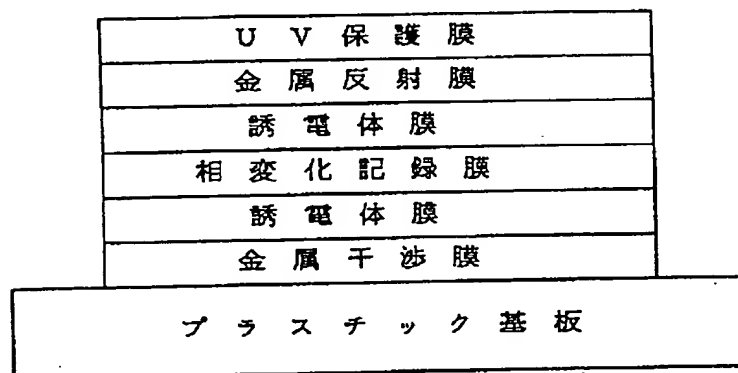 UV保護膜
金属反射膜
誘電体膜
相変化記録膜
誘電体膜
金属干渉膜
プラスチック基板